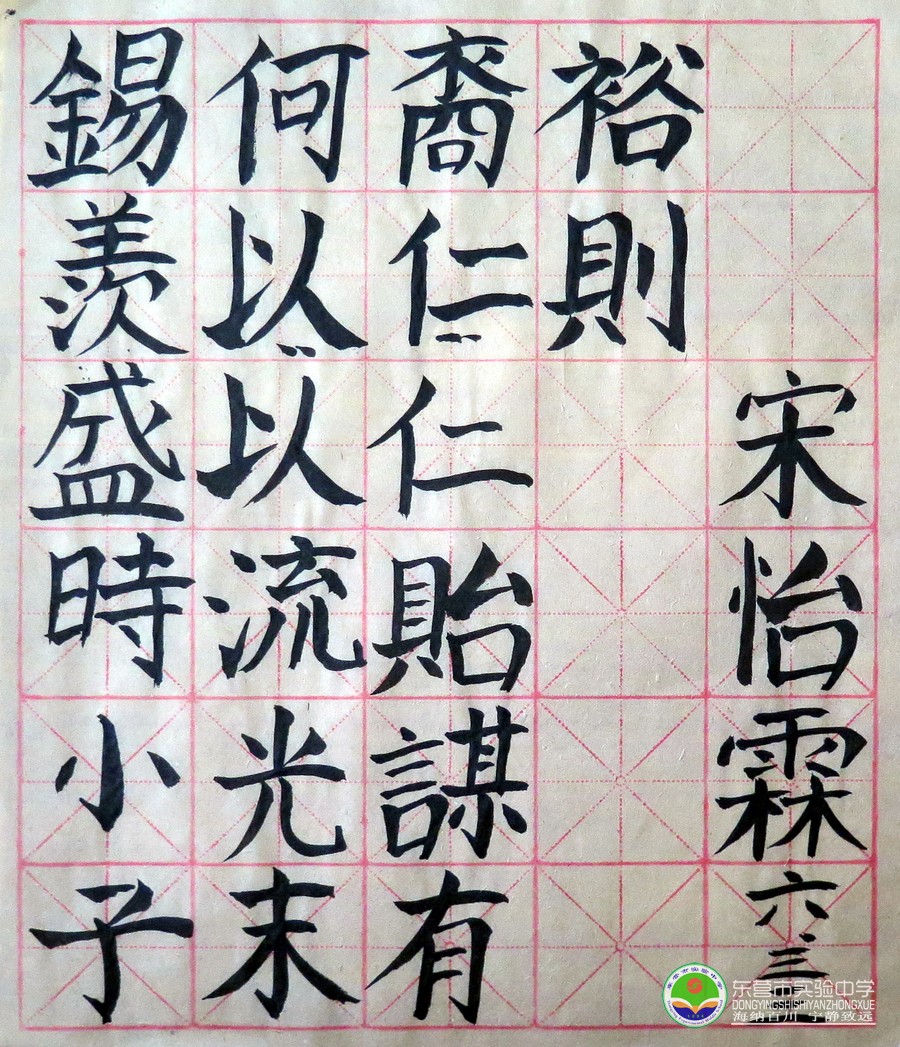 錫羨盛時小子
何以以流光末
裔仁仁貽謀有
裕則
宋怡霖
六.三
东营市实验中学
DONGYINGSHISHIYANZHONGXUE
海纳百川 宁静致远